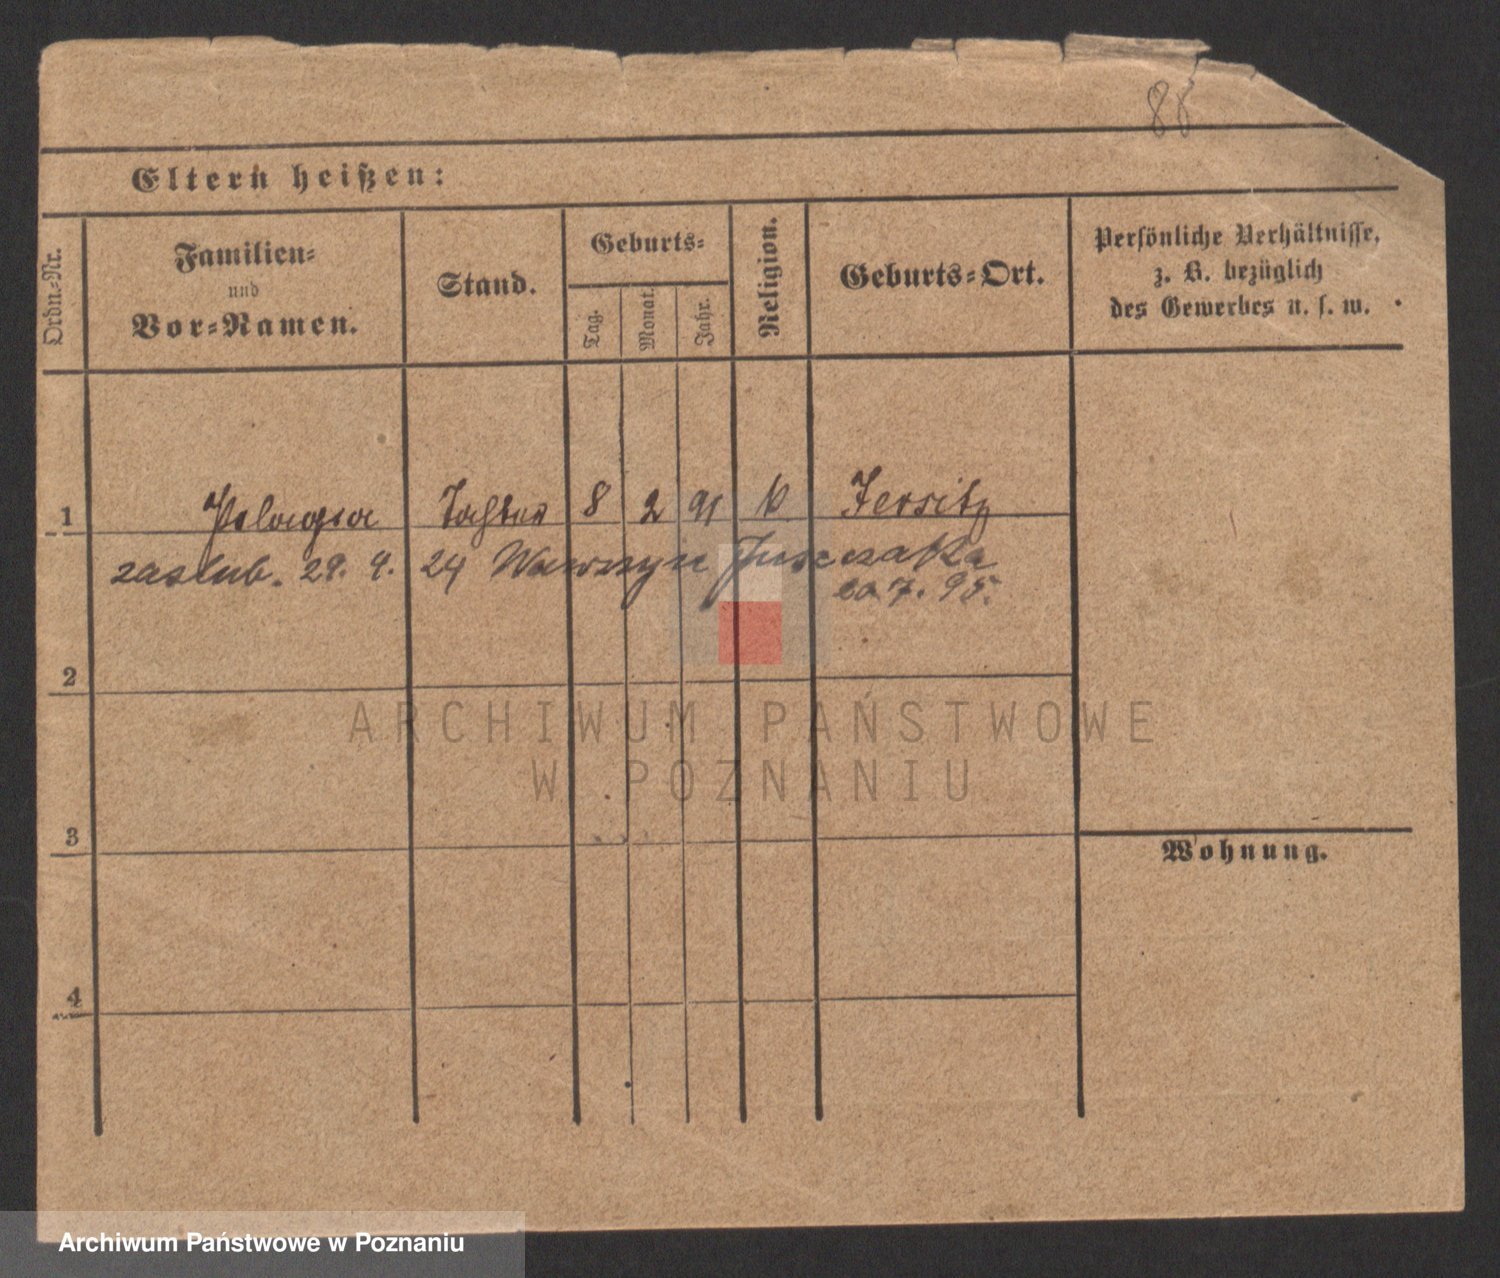 88
Eltern heißen:
Ordn.-Nr.
Familien-
und
Vor-Namen.
Stand.
Geburts-
Tag.
Monat.
Jahr.
Religion.
Geburts-Ort.
Persönliche Verhältnisse,
z. B. bezüglich
des Gewerbes u. s. w.
1 Pelagia Tochter 8 2 91 k Jersitz
zaslub. 29. 9. 24 Wawrzyn Juszczaka
20. 7. 95.
2
3
4
Wohnung.
ARCHIWUM PAŃSTWOWE
W POZNANIU
Archiwum Państwowe w Poznaniu